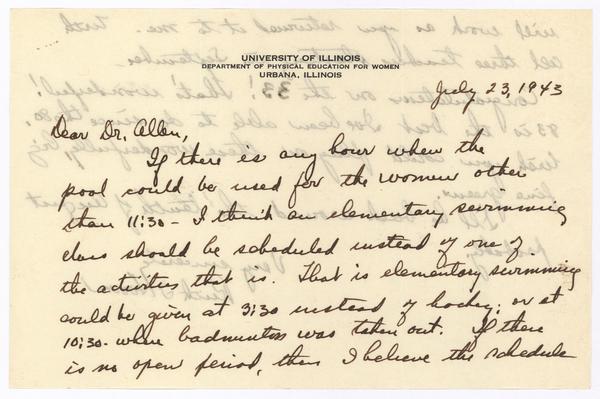 UNIVERSITY OF ILLINOIS
DEPARTMENT OF PHYSICAL EDUCATION FOR WOMEN
URBANA, ILLINOIS
July 23, 1943
Dear Dr. Allen,
If there is any hour when the
pool could be used for the women other
than 11:30 - I think an elementary swimming
class should be scheduled instead of one of
the activities that is. That is elementary swimming
could be given at 3:30 instead of hockey; or at
10:30 - when badminton was taken out. If there
is no open period, then I believe the schedule